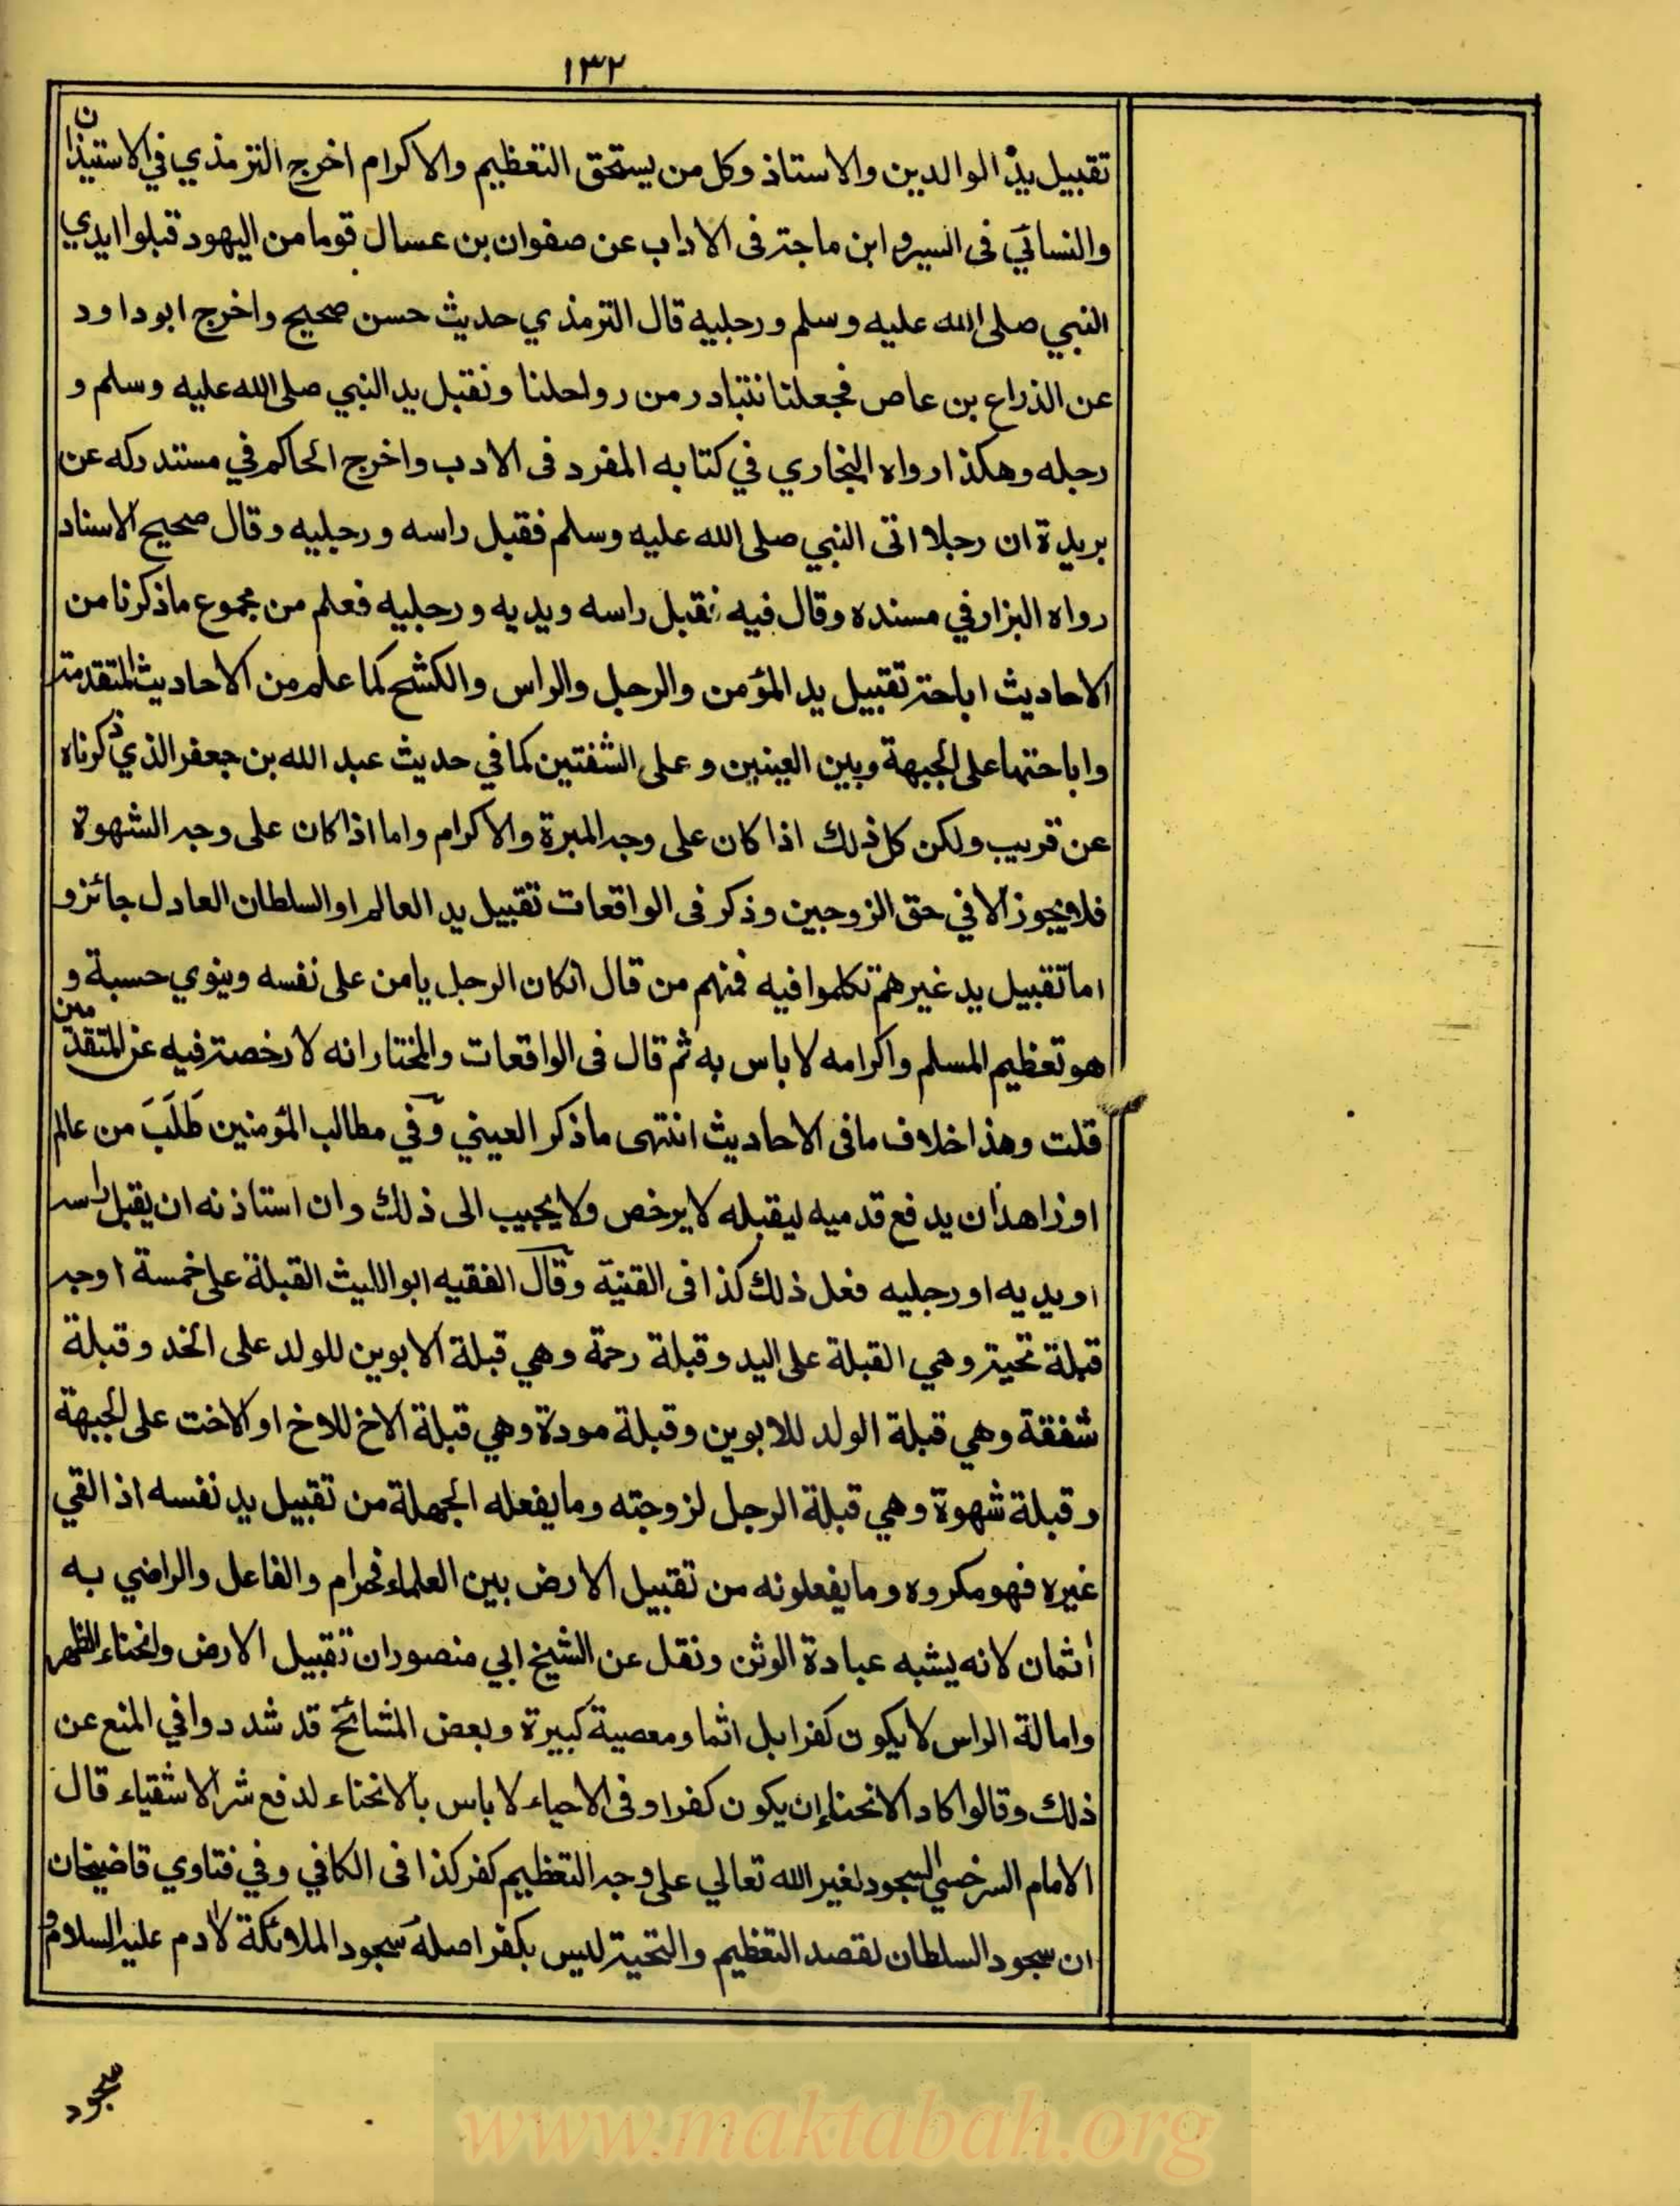 ١٣٢
تقبيل يد الوالدين والاستاذ وكل من يستحق التعظيم والاكرام اخرج الترمذي في الاستيذان
والنسائي فى السير و ابن ماجة فى الاداب عن صفوان بن عسال قوما من اليهود قبلوا ايدي
النبي صلى الله عليه وسلم ورجليه قال الترمذي حديث حسن صحيح واخرج ابو داود
عن الذراع بن عاص فجعلنا نتبادر من رواحلنا ونقبل يد النبي صلى الله عليه وسلم و
رجله وهكذا رواه البخاري في كتابه المفرد فى الادب واخرج الحاكم في مستدركه عن
بريدة ان رجلا اتى النبي صلى الله عليه وسلم فقبل راسه ورجليه وقال صحيح الاسناد
رواه البزار في مسنده وقال فيه نقبل راسه ويديه ورجليه فعلم من مجموع ماذكرنا من
الاحاديث اباحة تقبيل يد المؤمن والرجل والراس والكشح كما علم من الاحاديث المتقدمة
واباحتها على الجبهة وبين العينين وعلى الشفتين كما في حديث عبد الله بن جعفر الذي ذكرناه
عن قريب ولكن كل ذلك اذا كان على وجه المبرة والاكرام واما اذا كان على وجه الشهوة
فلا يجوز الا في حق الزوجين وذكر فى الواقعات تقبيل يد العالم او السلطان العادل جائز و
اما تقبيل يد غيرهم تكلموا فيه فمنهم من قال انكان الرجل يامن على نفسه وينوي حسبة و
هو تعظيم المسلم واكرامه لا باس به ثم قال فى الواقعات والمختار انه لا رخصة فيه عن المتقدمين
قلت وهذا خلاف مافى الاحاديث انتهى ماذكر العيني وفي مطالب المؤمنين طَلَبَ من عالم
او زاهد ان يدفع قدميه ليقبله لا يرخص ولا يجيب الى ذلك وان استاذنه ان يقبل راسه
او يديه او رجليه فعل ذلك كذا فى القنية وقال الفقيه ابو الليث القبلة على خمسة اوجه
قبلة تحية وهي القبلة على اليد وقبلة رحمة وهي قبلة الابوين للولد على الخد وقبلة
شفقة وهي قبلة الولد للابوين وقبلة مودة وهي قبلة الاخ للاخ او الاخت على الجبهة
وقبلة شهوة وهي قبلة الرجل لزوجته وما يفعله الجهلة من تقبيل يد نفسه اذا لقي
غيره فهو مكروه وما يفعلونه من تقبيل الارض بين العلماء فحرام والفاعل والراضي به
أثمان لانه يشبه عبادة الوثن ونقل عن الشيخ ابي منصور ان تقبيل الارض وانحناء الظهر
وامالة الراس لا يكون كفرا بل اثما ومعصية كبيرة وبعض المشائخ قد شددوا في المنع عن
ذلك وقالوا كاد الانحناء ان يكون كفرا وفى الاحياء لا باس بالانحناء لدفع شر الاشقياء قال
الامام السرخسي السجود لغير الله تعالي على وجه التعظيم كفر كذا فى الكافي وفي فتاوي قاضيخان
ان سجود السلطان لقصد التعظيم والتحية ليس بكفر اصله سجود الملائكة لادم عليه السلام و
سجود
www.maktabah.org